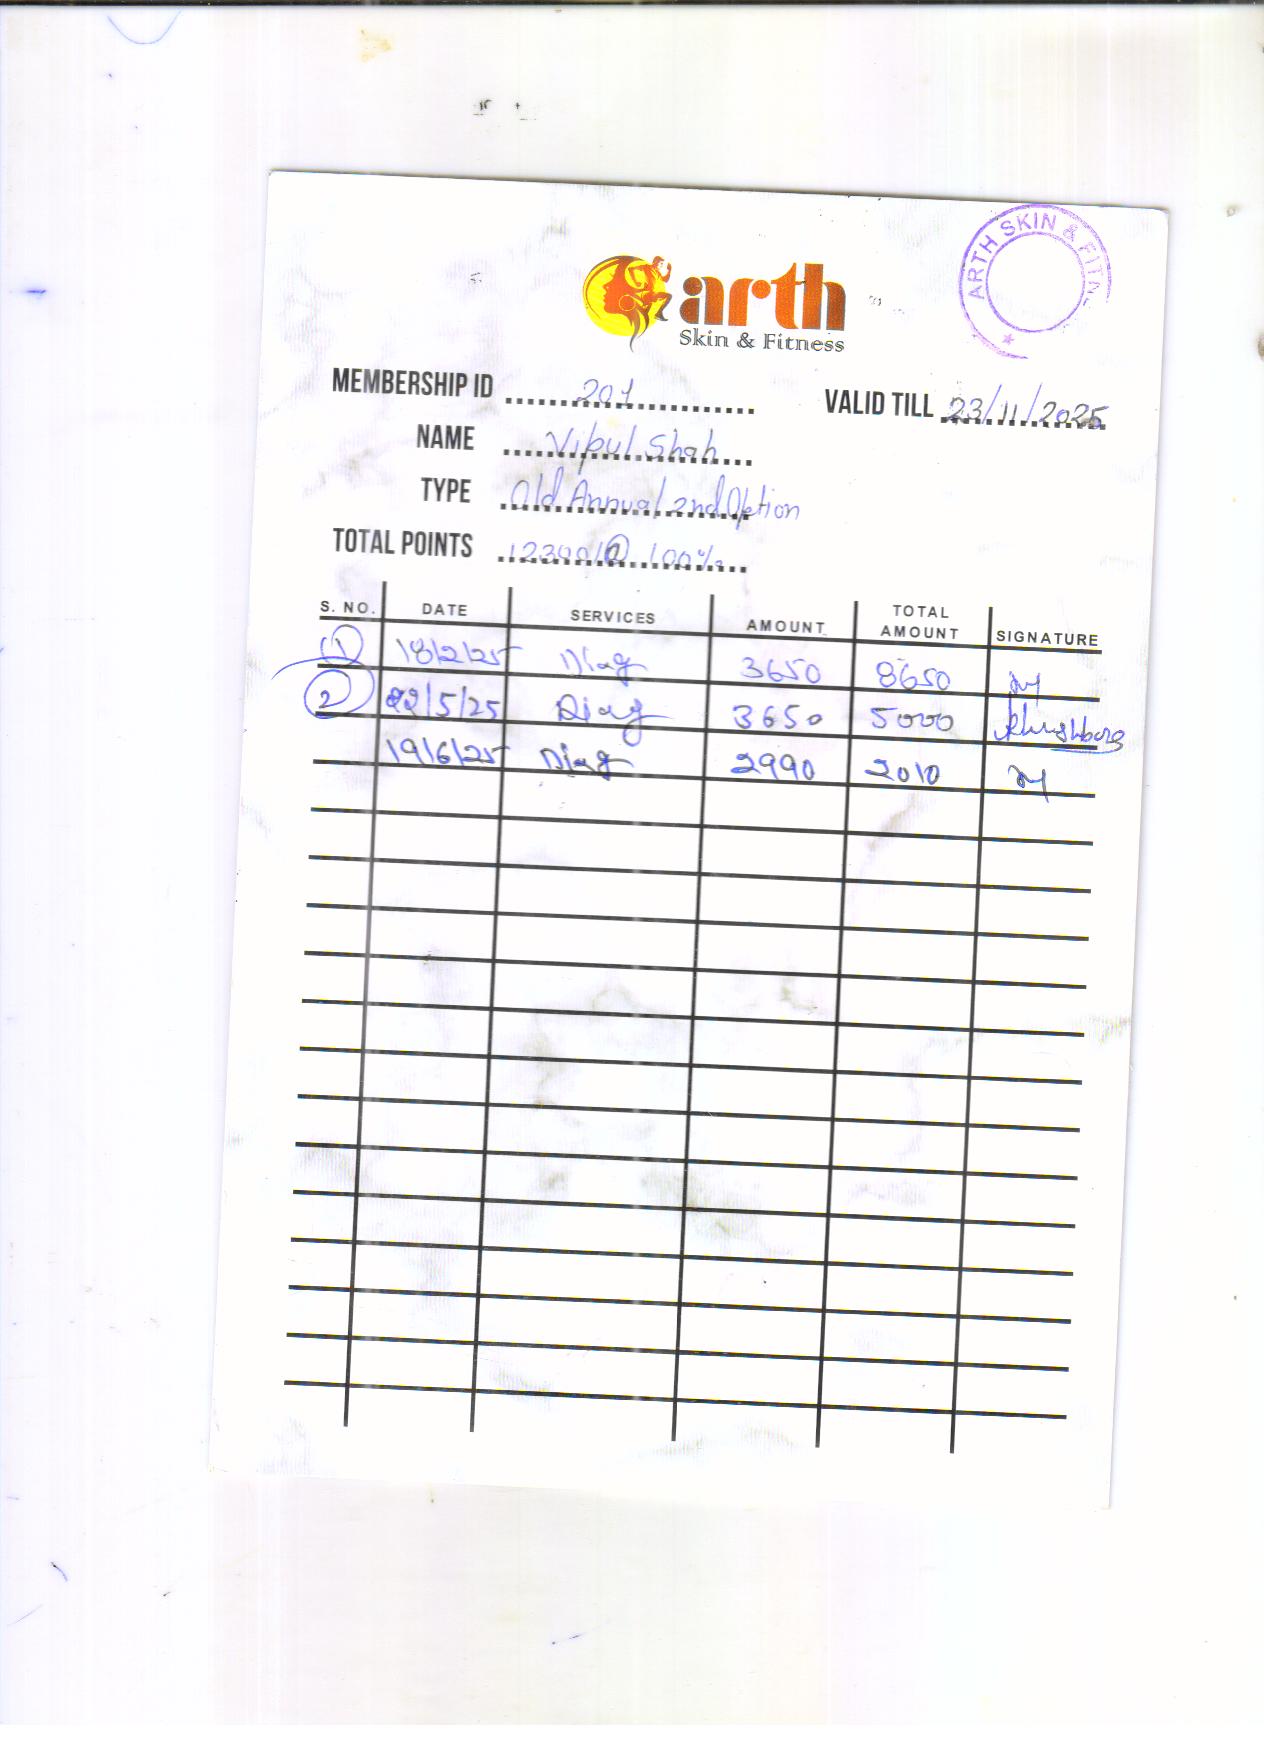 ARTH SKIN & FITN
arth
Skin & Fitness
MEMBERSHIP ID 201 VALID TILL 23/11/2025
NAME Vipul Shah
TYPE Old Annual 2nd Option
TOTAL POINTS @ 100%
S. NO. DATE SERVICES AMOUNT TOTAL AMOUNT SIGNATURE
(1) 18/2/25 Diag 3650 8650
2 22/5/25 Diag 3650 5000
19/6/25 Diag 2990 2010